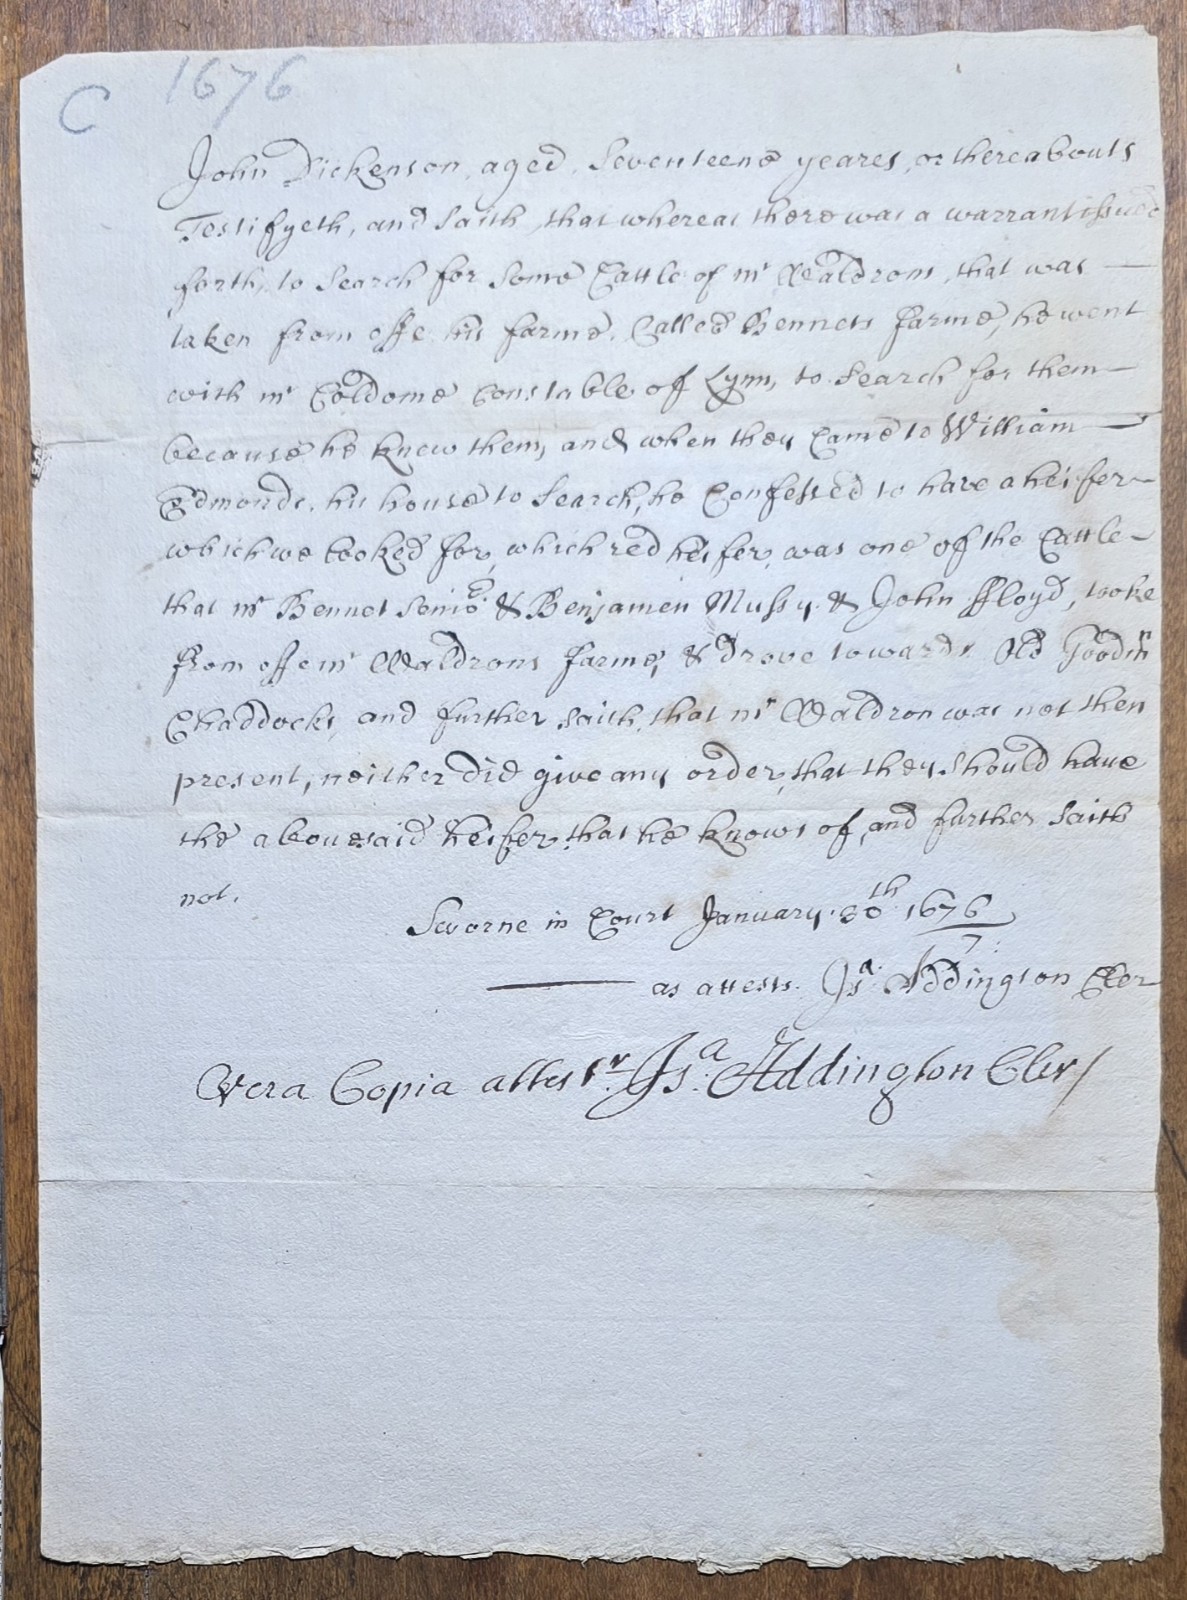 C 1676
John Dickenson, aged, Seventeene yeares, or thereabouts
Testifyeth, and Saith, that whereas there was a warrant issued
forth, to Search for Some Cattle of mr Waldrons, that was —
taken from offe his farme, Called Bennets farme, he went
with mr Coldome Constable of Lynn, to Search for them —
because he knew them, and when they Came to William —
Edmonds, his house to Search, he Confessed to have a heifer —
which we looked for, which red heifer, was one of the Cattle —
that mr Bennet Senior & Benjamen Mussy & John ffloyd, tooke
from offe mr Waldrons farme, & drove towards Old Goodm
Chaddocks, and further saith, that mr Waldron was not then
present, neither did give any order, that they should have
the abovesaid heifer, that he knows of, and further Saith
not.
Sworne in Court January. 30th 1676
7
— as attests. Jsa. Addington Cler
Vera Copia attestr. Jsa. Addington Cler/